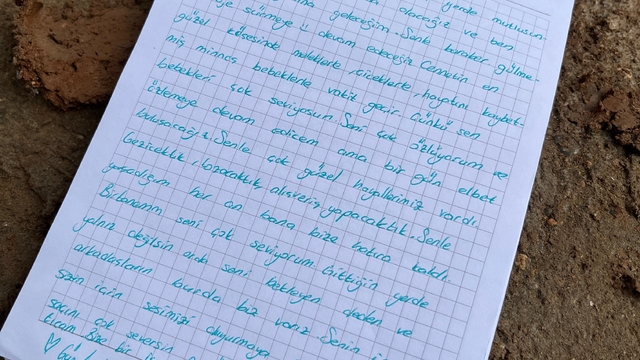 yerde mutlusun.
geleceğim. Senle olacağız ve ben
sürmeye devam edeceğim. Cennetin en
güzel köşesinde meleklerle, çiçeklerle, hayatını kaybet-
miş minnoş bebeklerle vakit geçir. Çünkü sen
bebekleri çok seviyosun. Seni çok özlüyorum ve
özlemeye devam edicem ama bir gün elbet
buluşacağız. Senle çok güzel hayallerimiz vardı
gezicektik, alışveriş yapacaktık. Senle
yaşadığım her an bana bize hatıra kaldı.
Bitanem seni çok seviyorum. Gittiğin yerde
yalnız değilsin orda seni bekleyen deden ve
arkadaşların burda biz varız. Senin
için sesimizi duyurmaya
saçını çok seversin
bir